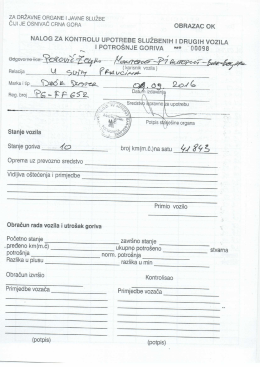 ZA DRŽAVNE ORGANE I JAVNE SLUŽBE
ČIJI JE OSNIVAČ CRNA GORA
OBRAZAC OK
NALOG ZA KONTROLU UPOTREBE SLUŽBENIH I DRUGIH VOZILA
I POTROŠNJE GORIVA 00098
Odgovorno lice
(korisnik vozila)
Relacija U SVIM PRAVCIMA
Marka i tip DACIA DUSTER
09.2016
Reg. broj PG-FF652
Stanje vozila
Stanje goriva 10 broj km(m.č.)na satu 41843
Oprema uz prevozno sredstvo
Vidljiva oštećenja i primjedbe
Primio vozilo
Obračun rada vozila i utrošak goriva
Početno stanje završno stanje
pređeno km(m.č) ukupno potrošeno stvarna
potrošnja norm. potrošnja
Razlika u plusu razlika u min
Obračun izvršio Kontrolisao
Primjedbe vozača Primjedbe vozača
(potpis) (potpis)